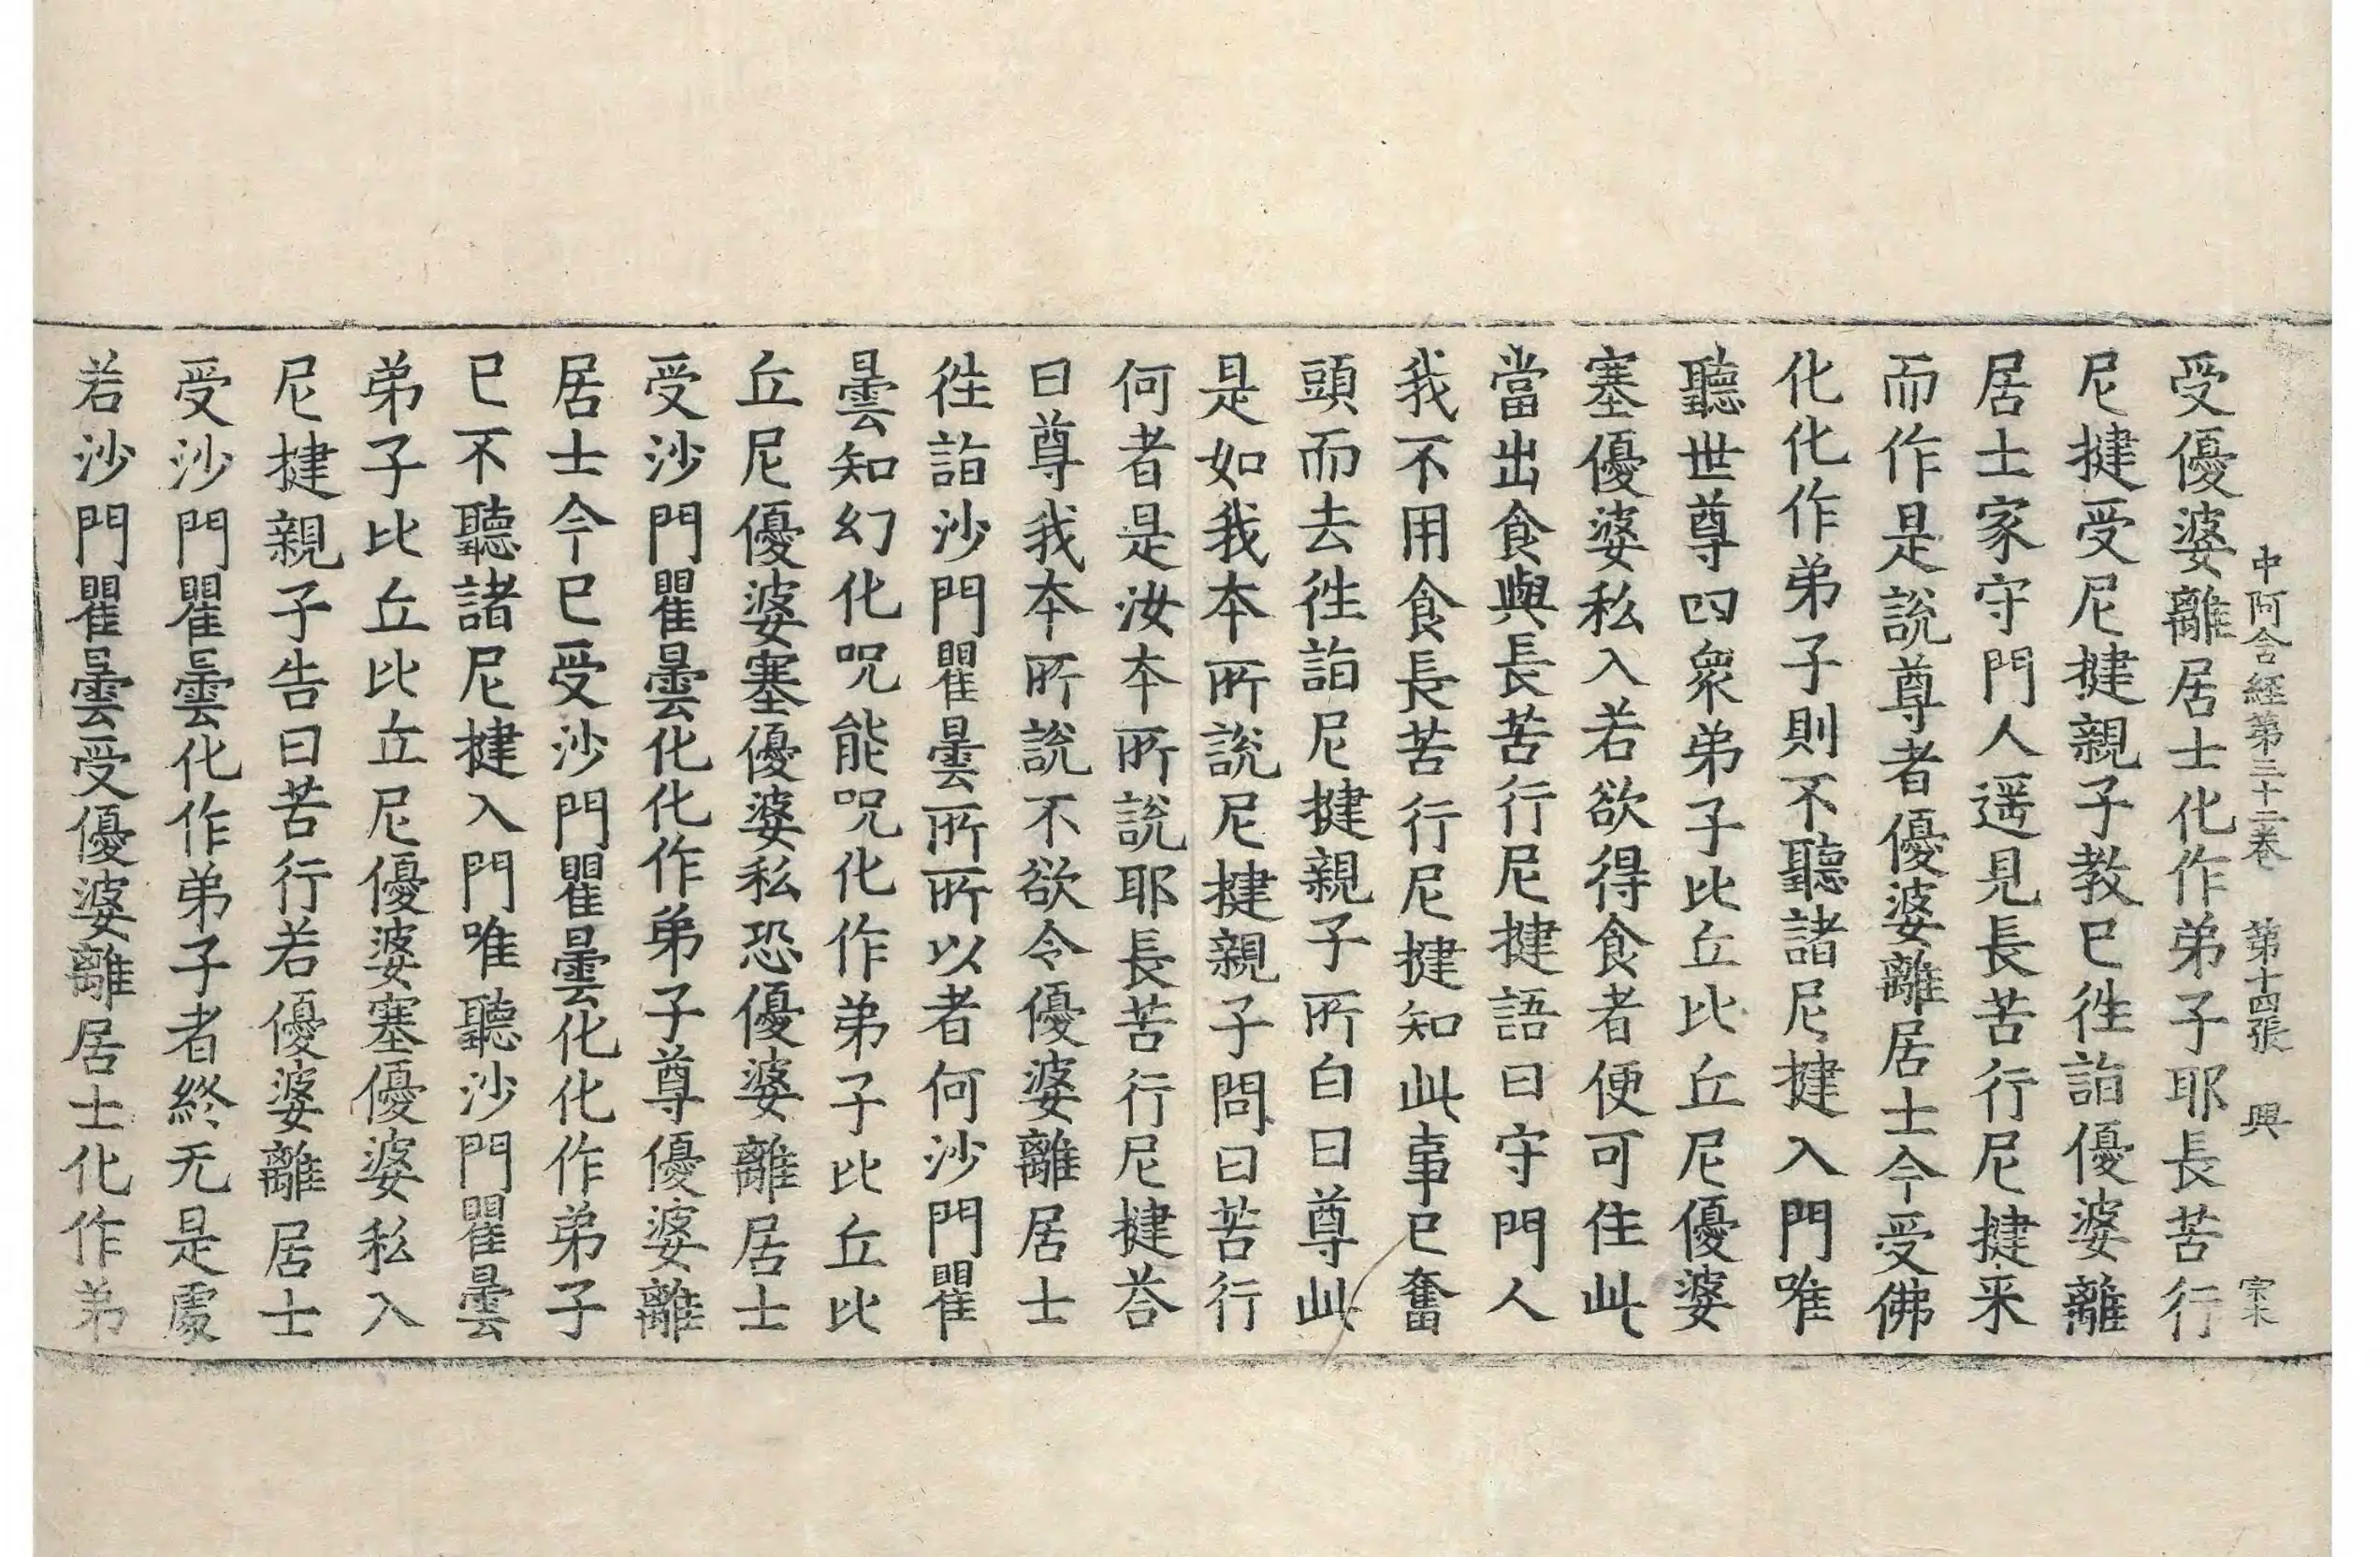 中阿含經第三十二卷 第十四張 興 宋
受優婆離居士化作弟子耶長苦行
尼揵受尼揵親子教已徃詣優婆離
居士家守門人遥見長苦行尼揵来
而作是說尊者優婆離居士今受佛
化化作弟子則不聽諸尼揵入門唯
聽世尊四衆弟子比丘比丘尼優婆
塞優婆私入若欲得食者便可住此
當出食與長苦行尼揵語曰守門人
我不用食長苦行尼揵知此事已奮
頭而去徃詣尼揵親子所白曰尊此
是如我本所說尼揵親子問曰苦行
何者是汝本所說耶長苦行尼揵荅
曰尊我本所說不欲令優婆離居士
徃詣沙門瞿曇所所以者何沙門瞿
曇知幻化呪能呪化作弟子比丘比
丘尼優婆塞優婆私恐優婆離居士
受沙門瞿曇化化作弟子尊優婆離
居士今已受沙門瞿曇化化作弟子
已不聽諸尼揵入門唯聽沙門瞿曇
弟子比丘比丘尼優婆塞優婆私入
尼揵親子告曰苦行若優婆離居士
受沙門瞿曇化作弟子者終无是處
若沙門瞿曇受優婆離居士化作弟